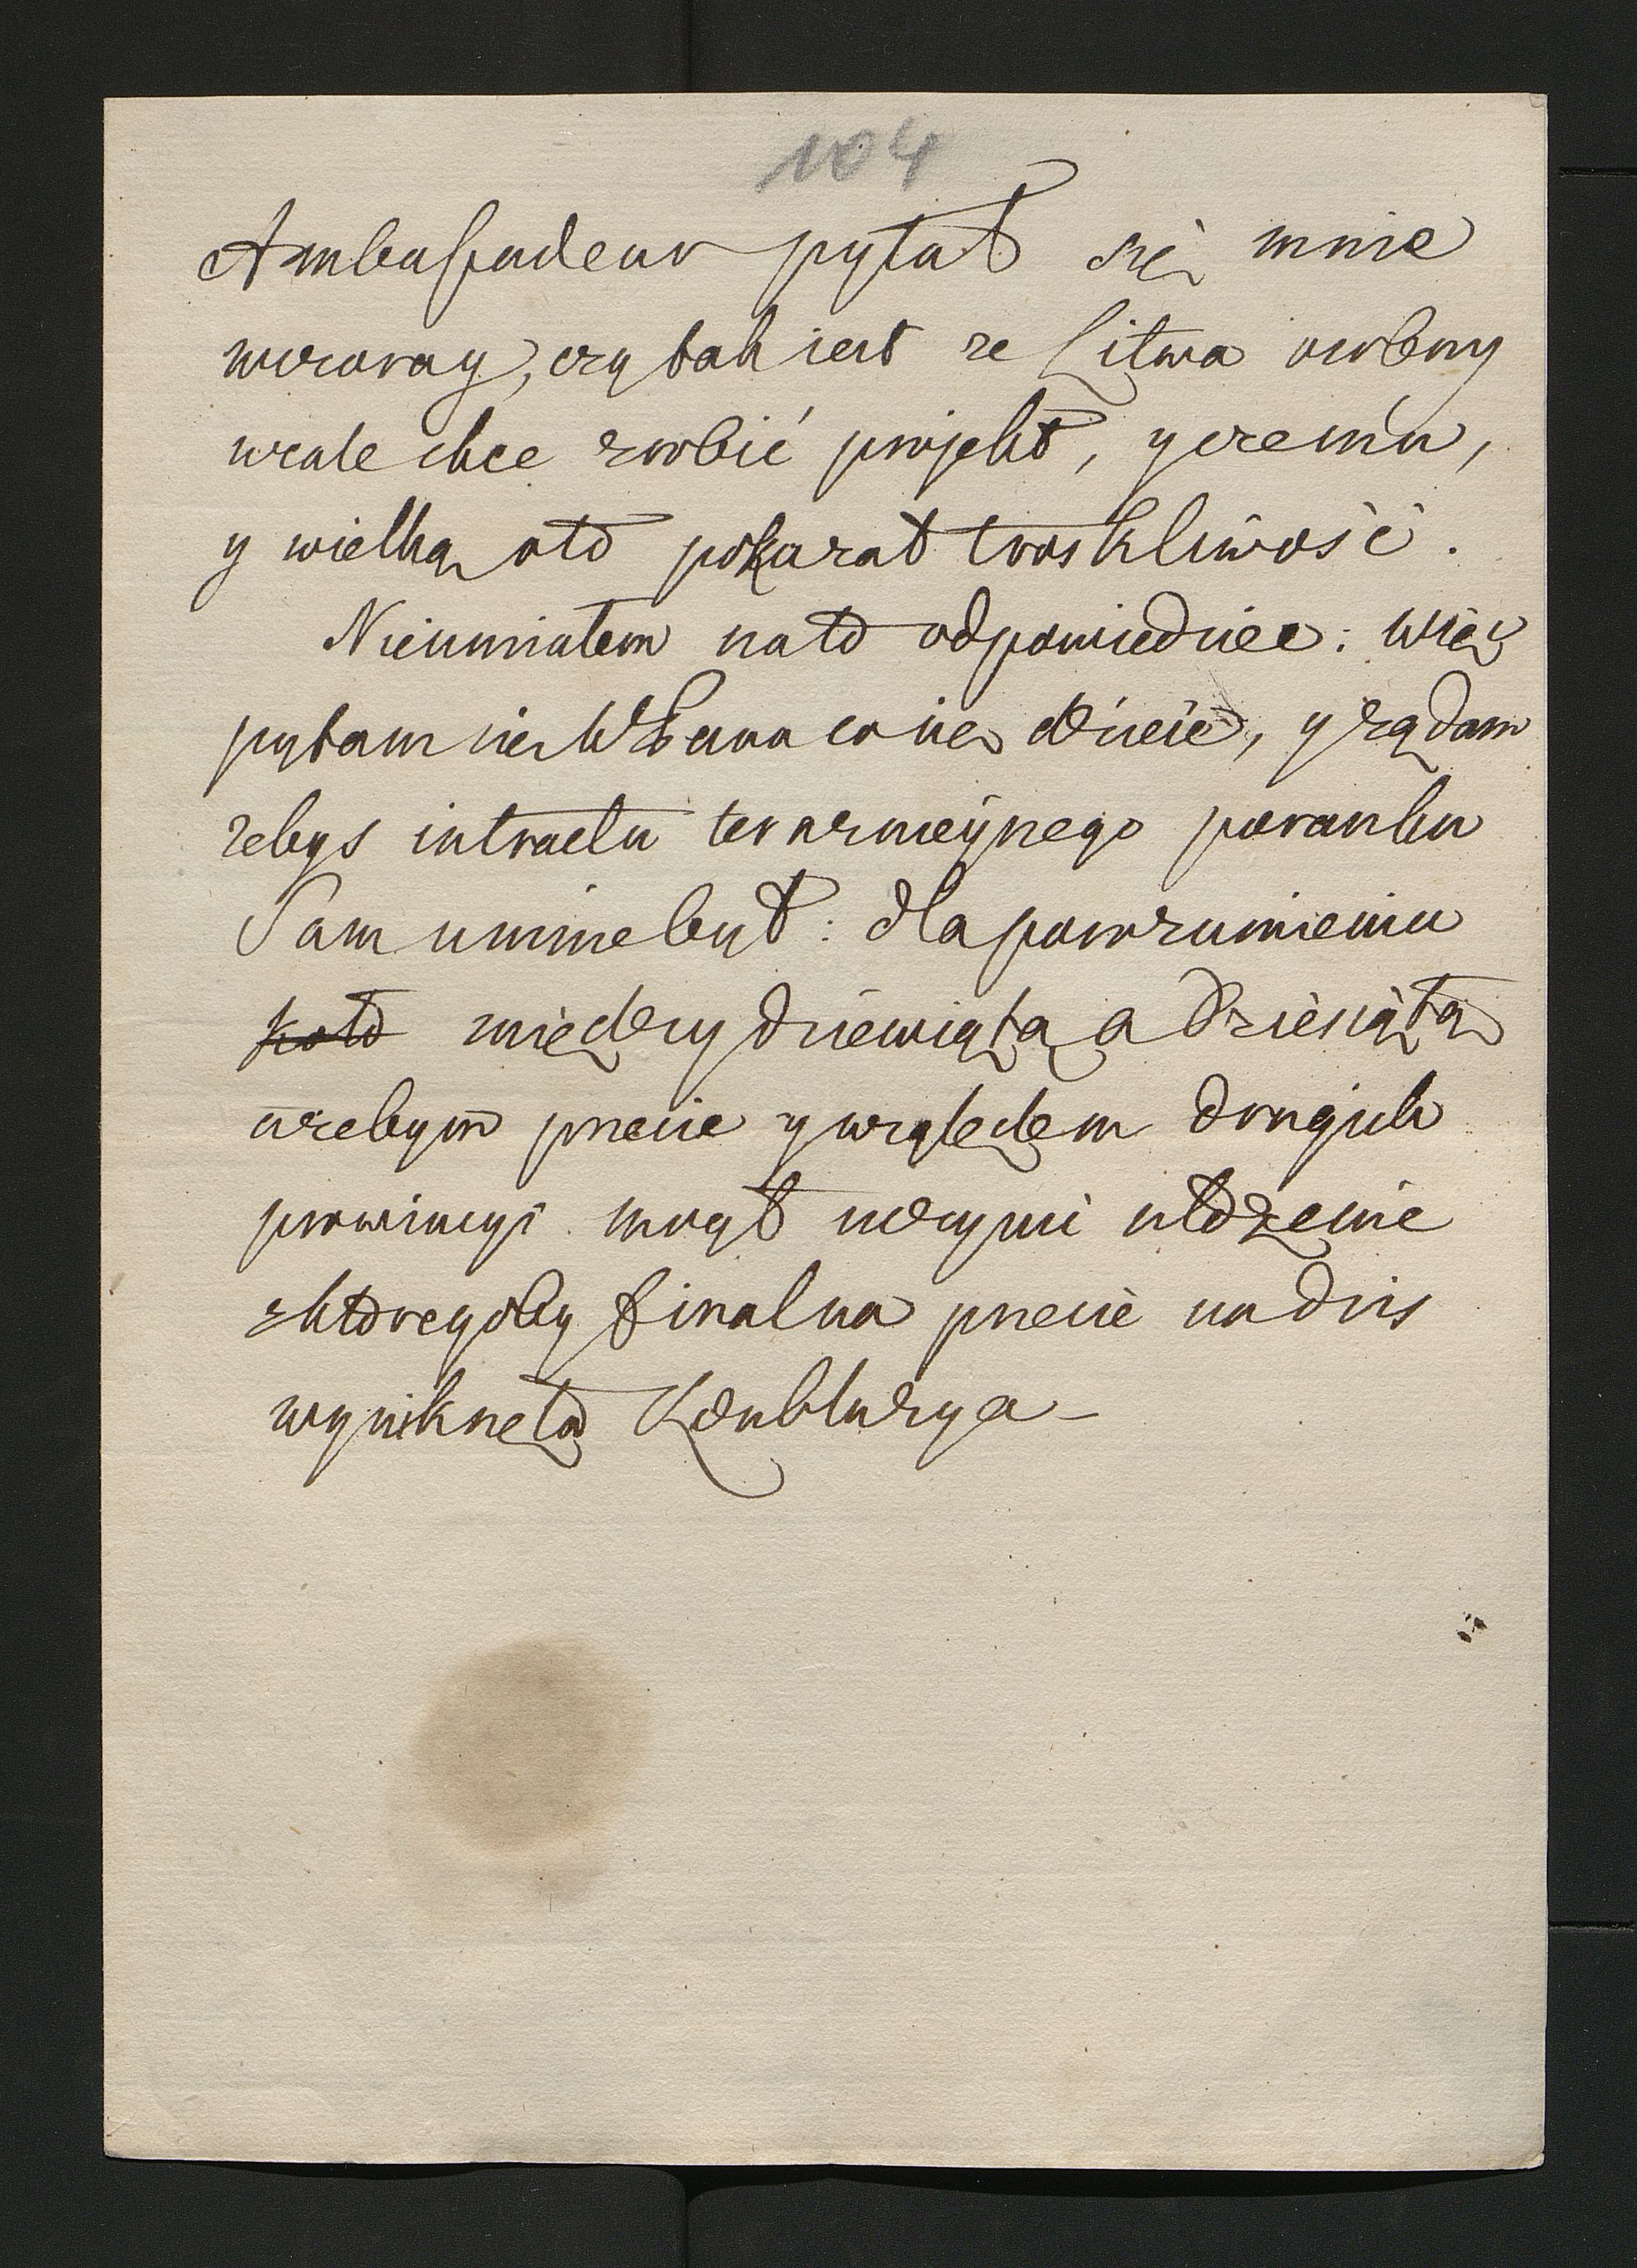 104
Ambassadeur pytał się mnie
wczoray, czy tak iest ze Litwa osobny
wcale chce zrobić projekt, y czemu,
y wielką oto pokazał troskliwość.
Nieumiałem nato odpowiedziec: więc
pytam sie WPana co sie dzieie, y żądam
zebys intractu terazneyszego poranku
Sam umnie był: dla porozumienia
koło między dziewiątą a dziesiątą
azebym przecie y względem drugich
prowincyi mogł uczynic ułożenie
z ktoregoby finalna przecie na dzis
wyniknęła Konkluzya -